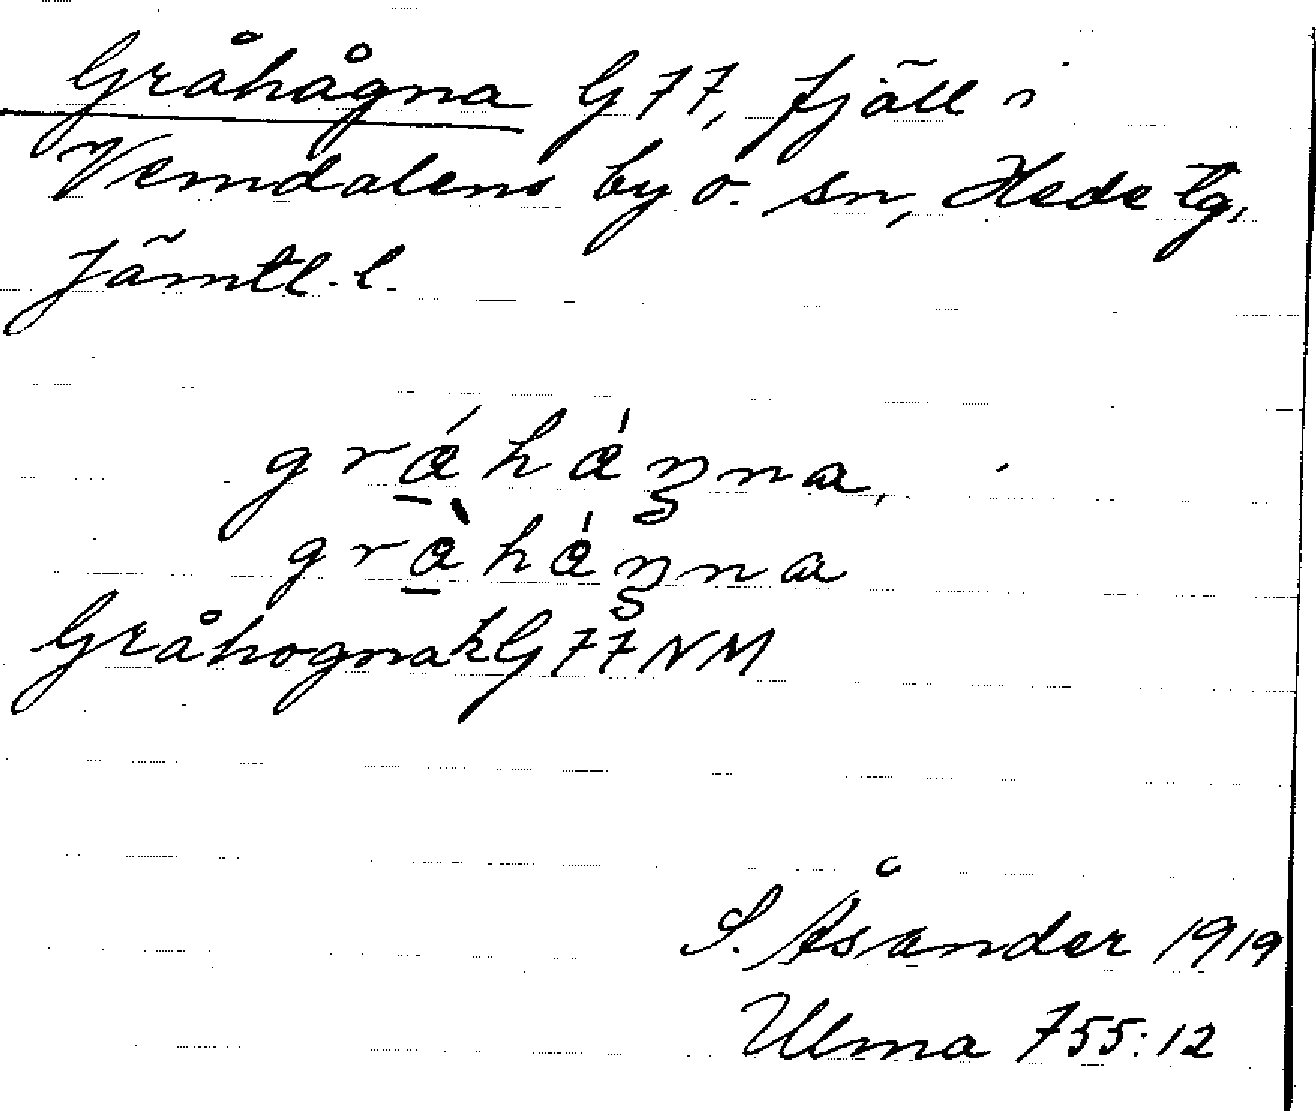 Gråhågna G 77, fjäll i
Vemdalens by o. sn, Hede tg,
Jämtl. l.
gráháŋna,
gràháŋna
Gråhogna k G 77 NM
S. Åsander 1919
Ulma 755:12